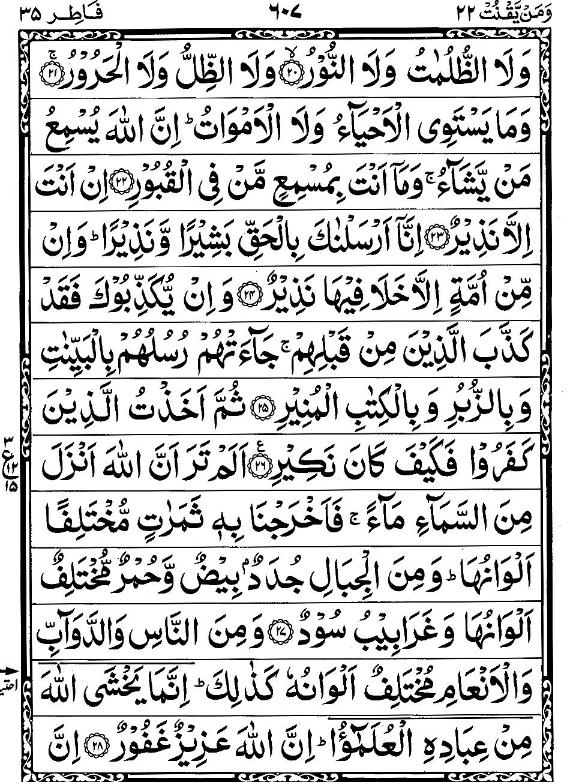 وَمَنْ يَّقْنُتْ ٢٢ ٦٠٧ فَاطِر ٣٥
وَلَا الظُّلُمٰتُ وَلَا النُّوْرُ ۙ‏﴿۲۰﴾ وَلَا الظِّلُّ وَلَا الْحَرُوْرُ ۚ‏﴿۲۱﴾
وَمَا يَسْتَوِى الْاَحْيَآءُ وَلَا الْاَمْوَاتُ ؕ اِنَّ اللّٰهَ يُسْمِعُ
مَنْ يَّشَآءُ ۚ وَمَاۤ اَنْتَ بِمُسْمِعٍ مَّنْ فِى الْقُبُوْرِ ﴿۲۲﴾ اِنْ اَنْتَ
اِلَّا نَذِيْرٌ ﴿۲۳﴾ اِنَّاۤ اَرْسَلْنٰكَ بِالْحَقِّ بَشِيْرًا وَّنَذِيْرًا ؕ وَاِنْ
مِّنْ اُمَّةٍ اِلَّا خَلَا فِيْهَا نَذِيْرٌ ﴿۲۴﴾ وَاِنْ يُّكَذِّبُوْكَ فَقَدْ
كَذَّبَ الَّذِيْنَ مِنْ قَبْلِهِمْ ۚ جَآءَتْهُمْ رُسُلُهُمْ بِالْبَيِّنٰتِ
وَبِالزُّبُرِ وَبِالْكِتٰبِ الْمُنِيْرِ ﴿۲۵﴾ ثُمَّ اَخَذْتُ الَّذِيْنَ
كَفَرُوْا فَكَيْفَ كَانَ نَكِيْرِ ﴿۲۶﴾ اَلَمْ تَرَ اَنَّ اللّٰهَ اَنْزَلَ
مِنَ السَّمَآءِ مَآءً ۚ فَاَخْرَجْنَا بِهٖ ثَمَرٰتٍ مُّخْتَلِفًا
اَلْوَانُهَا ؕ وَمِنَ الْجِبَالِ جُدَدٌۢ بِيْضٌ وَّحُمْرٌ مُّخْتَلِفٌ
اَلْوَانُهَا وَغَرَابِيْبُ سُوْدٌ ﴿۲۷﴾ وَمِنَ النَّاسِ وَالدَّوَآبِّ
وَالْاَنْعَامِ مُخْتَلِفٌ اَلْوَانُهٗ كَذٰلِكَ ؕ اِنَّمَا يَخْشَى اللّٰهَ
مِنْ عِبَادِهِ الْعُلَمٰٓؤُا ؕ اِنَّ اللّٰهَ عَزِيْزٌ غَفُوْرٌ ﴿۲۸﴾ اِنَّ
٣
ع
١٢
١٥